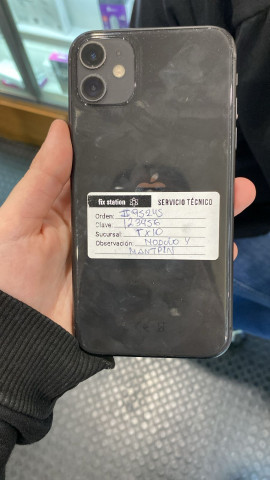 fix station SERVICIO TÉCNICO
Orden: I95245
Clave: 123456
Sucursal: TX10
Observación: MODULO Y
MANTPIN